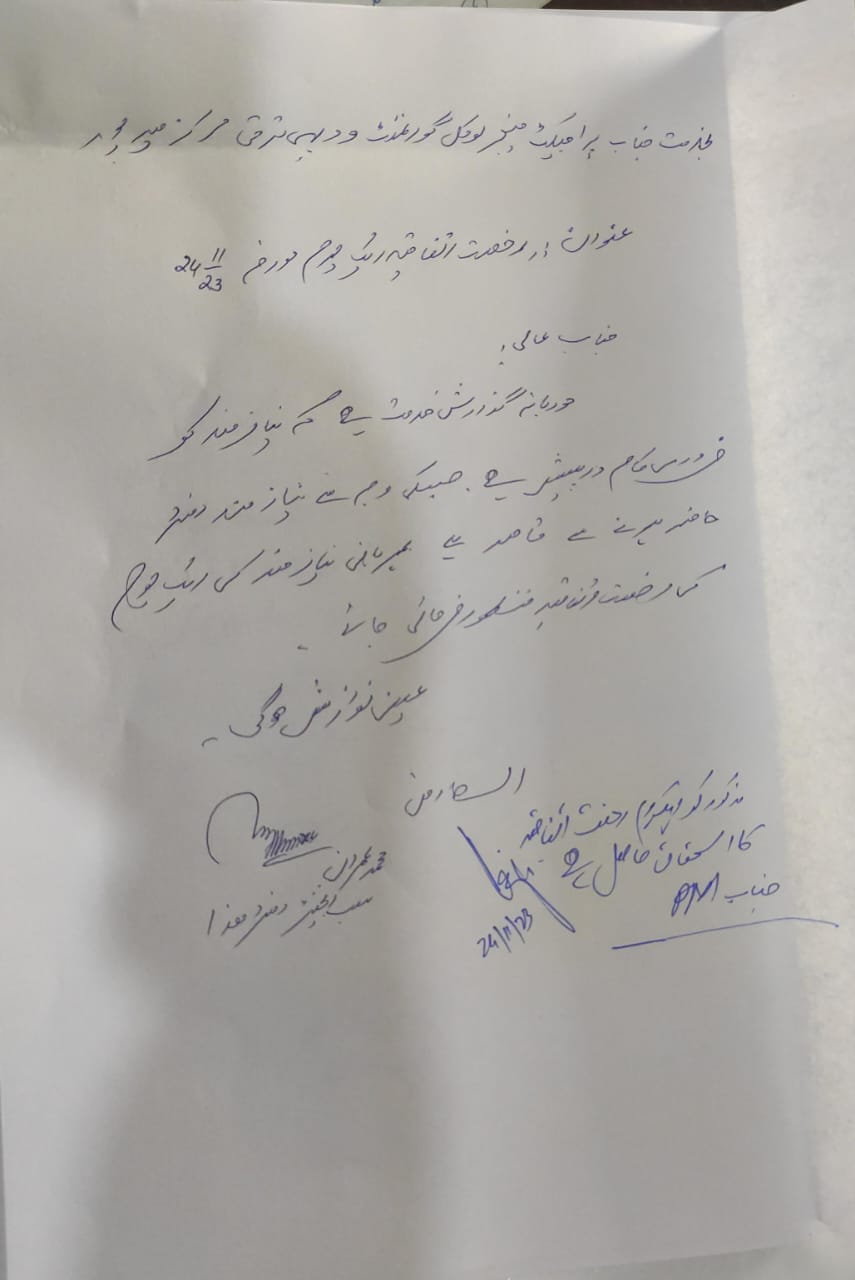 بخدمت جناب پراجیکٹ مینجر لوکل گورنمنٹ و دیہی ترقی مرکز میر پور
عنوان:۔ رخصت اتفاقیہ ایک یوم مورخہ 24 11/23
جناب عالی!
مودبانہ گذارش خدمت ہے کہ نیاز مند کو
ضروری کام درپیش ہے۔ جسکی وجہ سے نیاز مند دفتر
حاضر ہونے سے قاصر ہے بمہربانی نیاز مند کی ایک یوم
کی رخصت اتفاقیہ منظور فرمائی جائے۔
عین نوازش ہوگی۔
العارض
محمد عمران
سب انجینئر دفتر ھذا
مذکور کو ایک یوم رخصت اتفاقیہ
کا استحقاق حاصل ہے
جناب PM
24/11/23